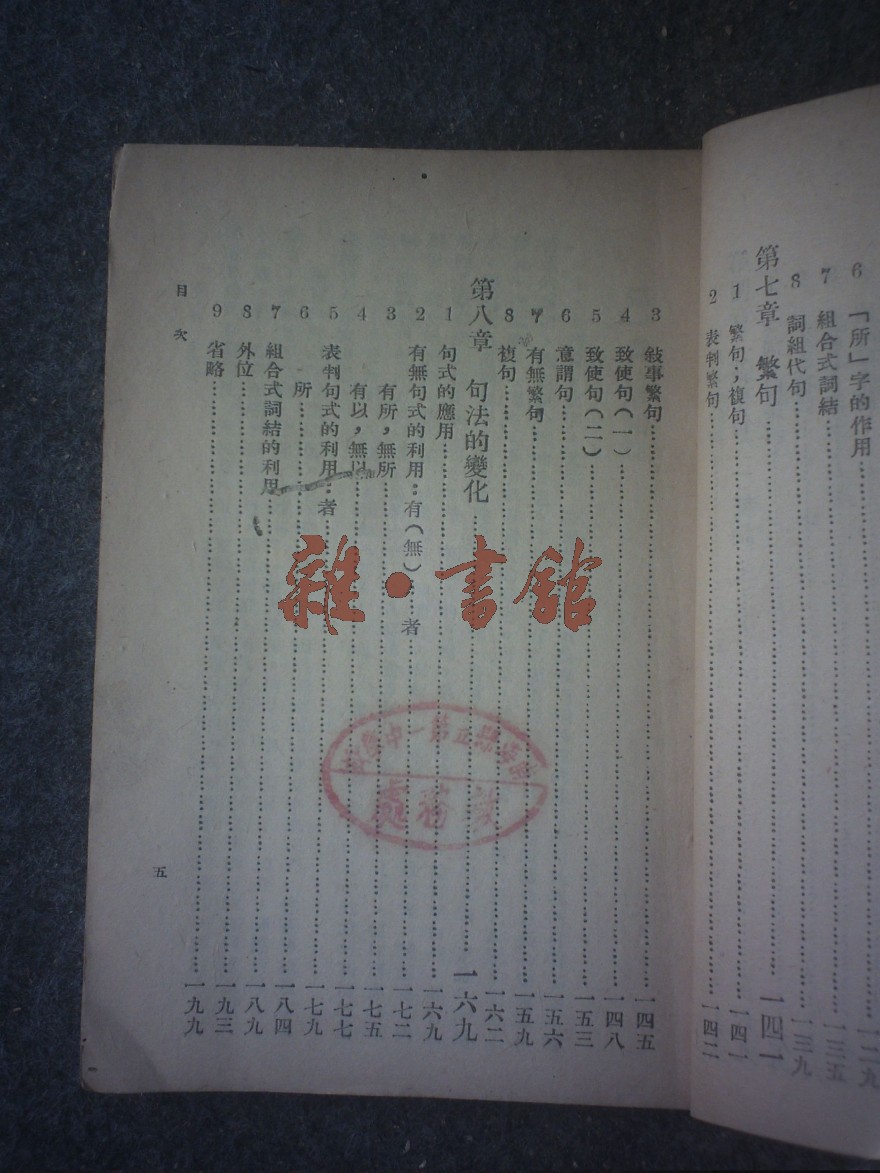 6 「所」字的作用……一二九
7 組合式詞結……一三五
8 詞組代句……一三九
第七章 繁句……一四一
1 繁句，複句……一四一
2 表判繁句……一四二
3 敍事繁句……一四五
4 致使句(一)……一四八
5 致使句(二)……一五三
6 意謂句……一五六
7 有無繁句……一五九
8 複句……一六二
第八章 句法的變化……一六九
1 句式的應用……一六九
2 有無句式的利用：有(無)……者……一七二
3 有所，無所……一七五
4 有以，無以……一七七
5 表判句式的利用：者……一七九
6 所……一八四
7 組合式詞結的利用……一八九
8 外位……一九三
9 省略……一九九
目次
五
雜·書館
教務處